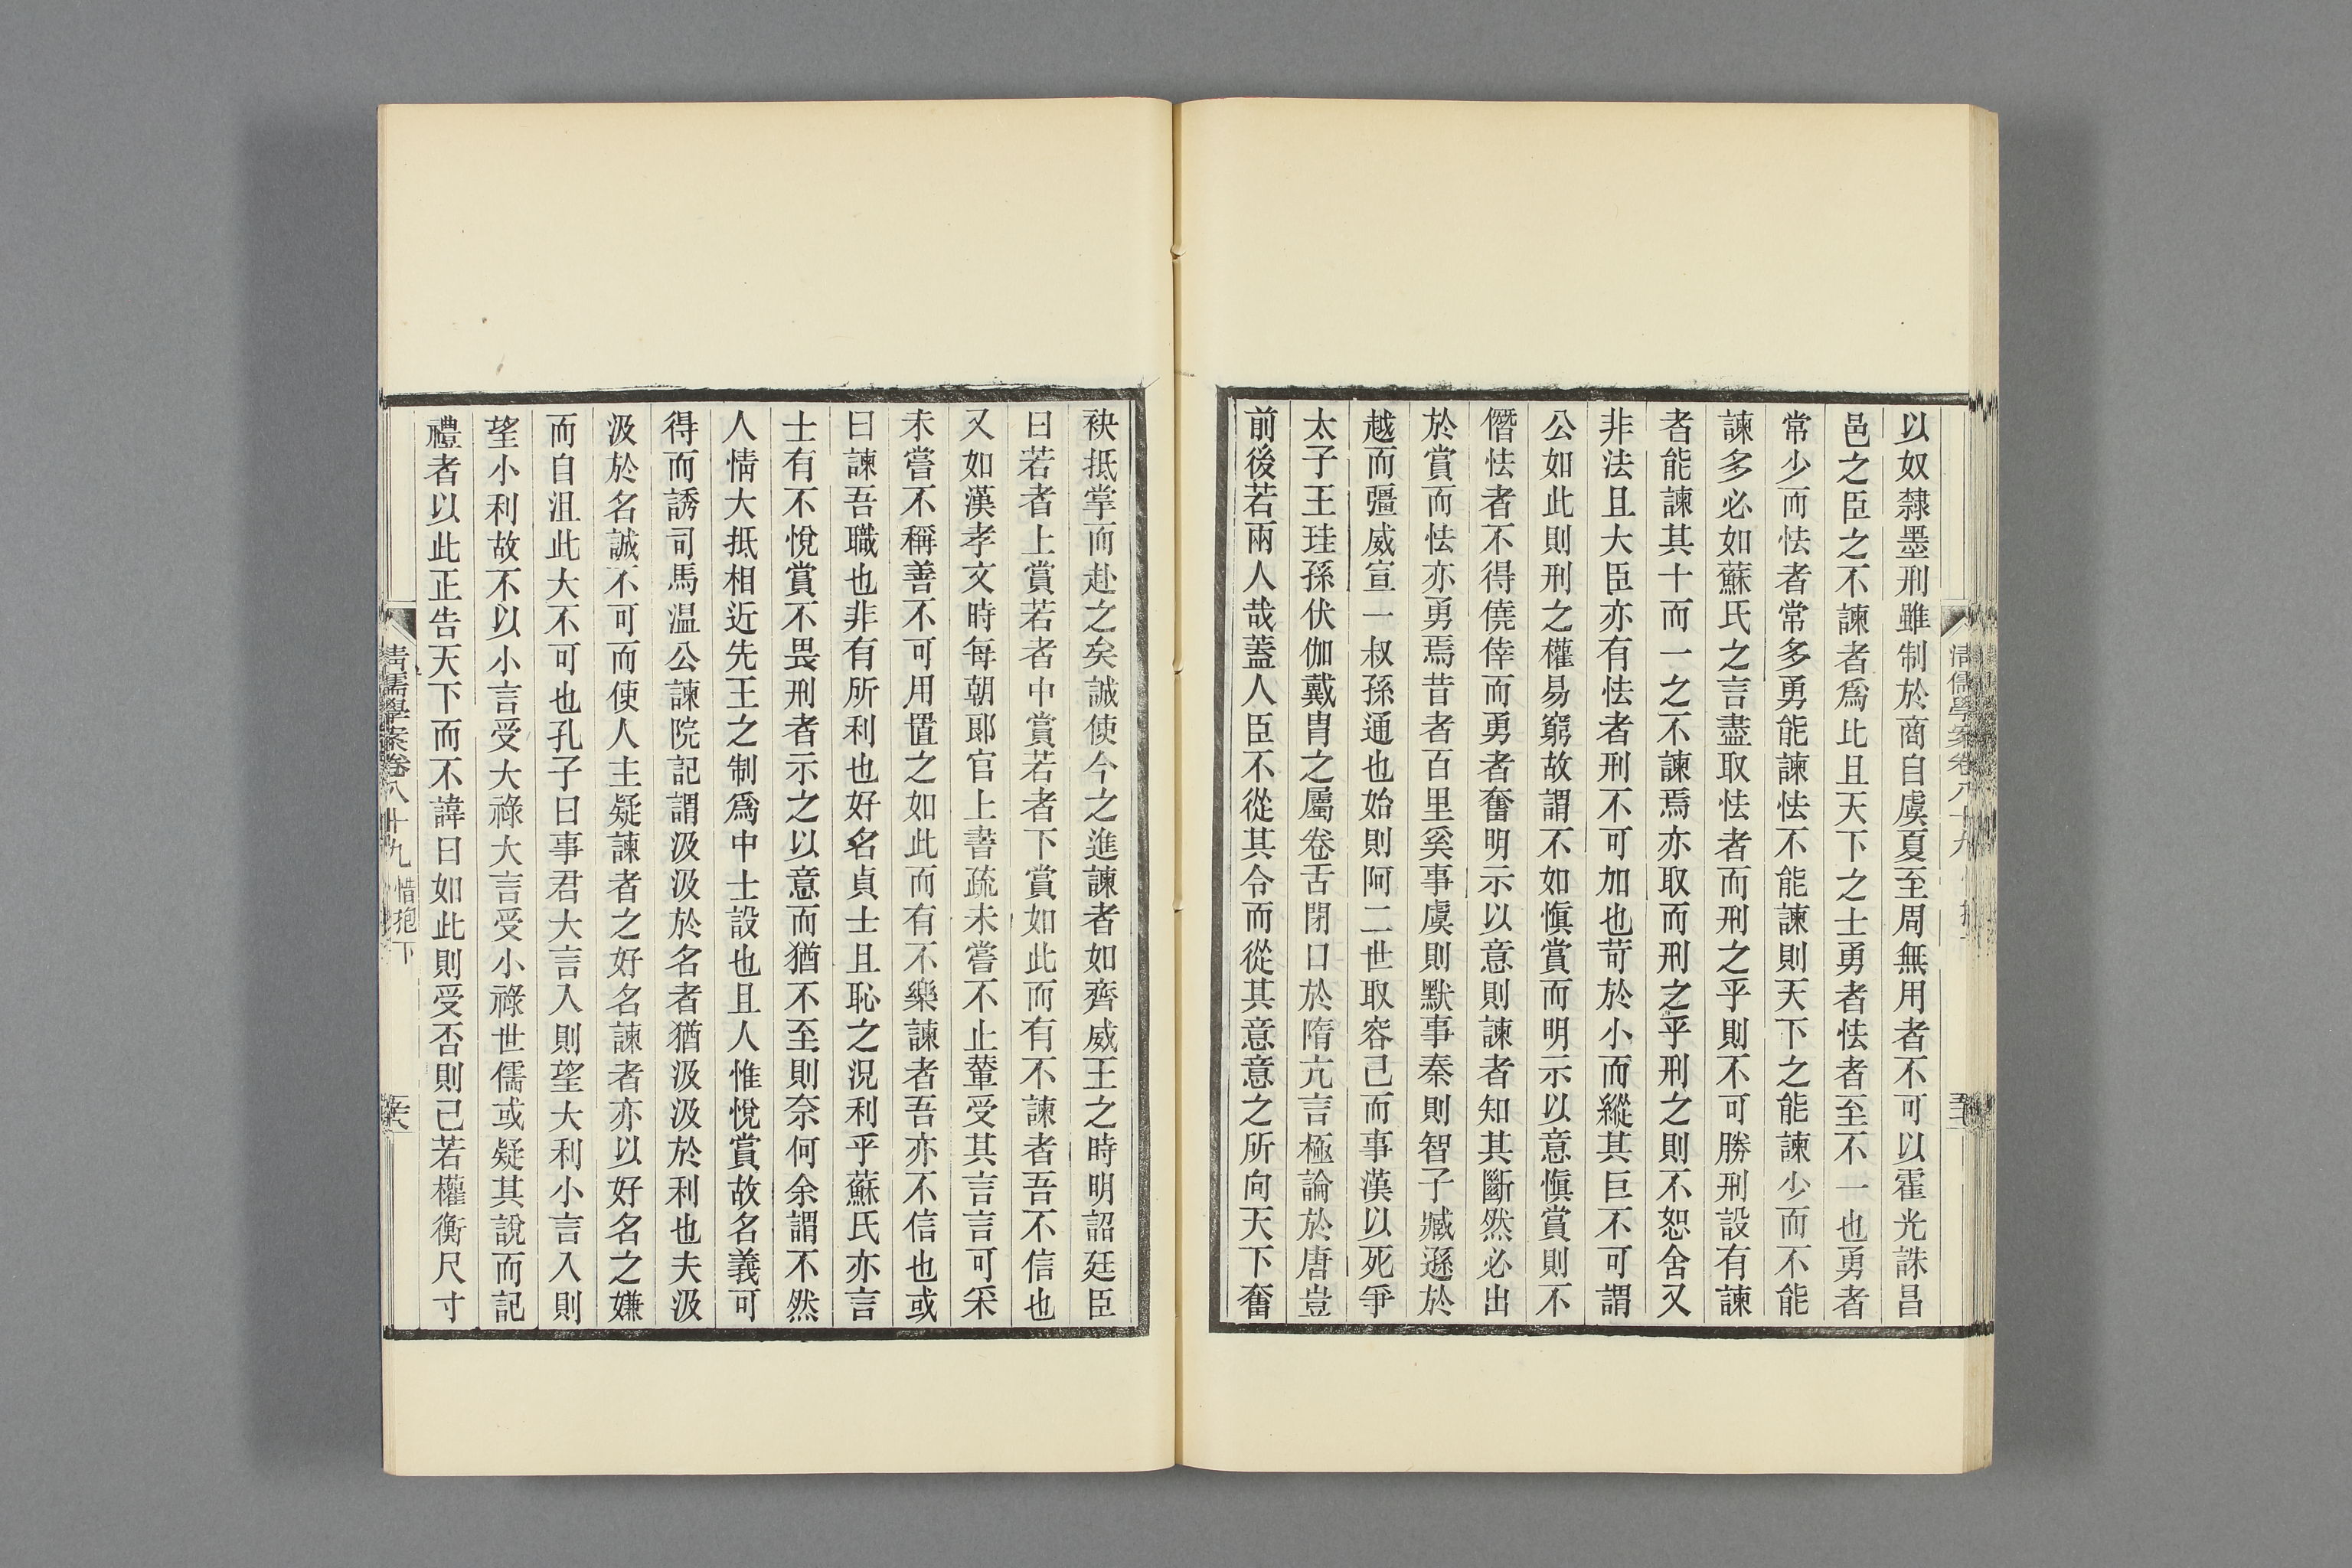 以奴隸墨刑雖制於商自虞夏至周無用者不可以霍光誅昌
邑之臣之不諫者爲比且天下之士勇者怯者至不一也勇者
常少而怯者常多勇能諫怯不能諫則天下之能諫少而不能
諫多必如蘇氏之言盡取怯者而刑之乎則不可勝刑設有諫
者能諫其十而一之不諫焉亦取而刑之乎刑之則不恕舍又
非法且大臣亦有怯者刑不可加也苛於小而縱其巨不可謂
公如此則刑之權易窮故謂不如愼賞而明示以意愼賞則不
僭怯者不得僥倖而勇者奮明示以意則諫者知其斷然必出
於賞而怯亦勇焉昔者百里奚事虞則默事秦則智子臧遜於
越而彊威宣一叔孫通也始則阿二世取容已而事漢以死爭
太子王珪孫伏伽戴胄之屬卷舌閉口於隋亢言極論於唐豈
前後若兩人哉蓋人臣不從其令而從其意意之所向天下奮
袂抵掌而赴之矣誠使今之進諫者如齊威王之時明詔廷臣
曰若者上賞若者中賞若者下賞如此而有不諫者吾不信也
又如漢孝文時每朝郎官上書疏未嘗不止輦受其言言可采
未嘗不稱善不可用置之如此而有不樂諫者吾亦不信也或
曰諫吾職也非有所利也好名貞士且恥之況利乎蘇氏亦言
士有不悅賞不畏刑者示之以意而猶不至則奈何余謂不然
人情大抵相近先王之制爲中士設也且人惟悅賞故名義可
得而誘司馬温公諫院記謂汲汲於名者猶汲汲於利也夫汲
汲於名誠不可而使人主疑諫者之好名諫者亦以好名之嫌
而自沮此大不可也孔子曰事君大言入則望大利小言入則
望小利故不以小言受大祿大言受小祿世儒或疑其說而記
禮者以此正告天下而不諱曰如此則受否則已若權衡尺寸
清儒學案卷八十九 惜抱下